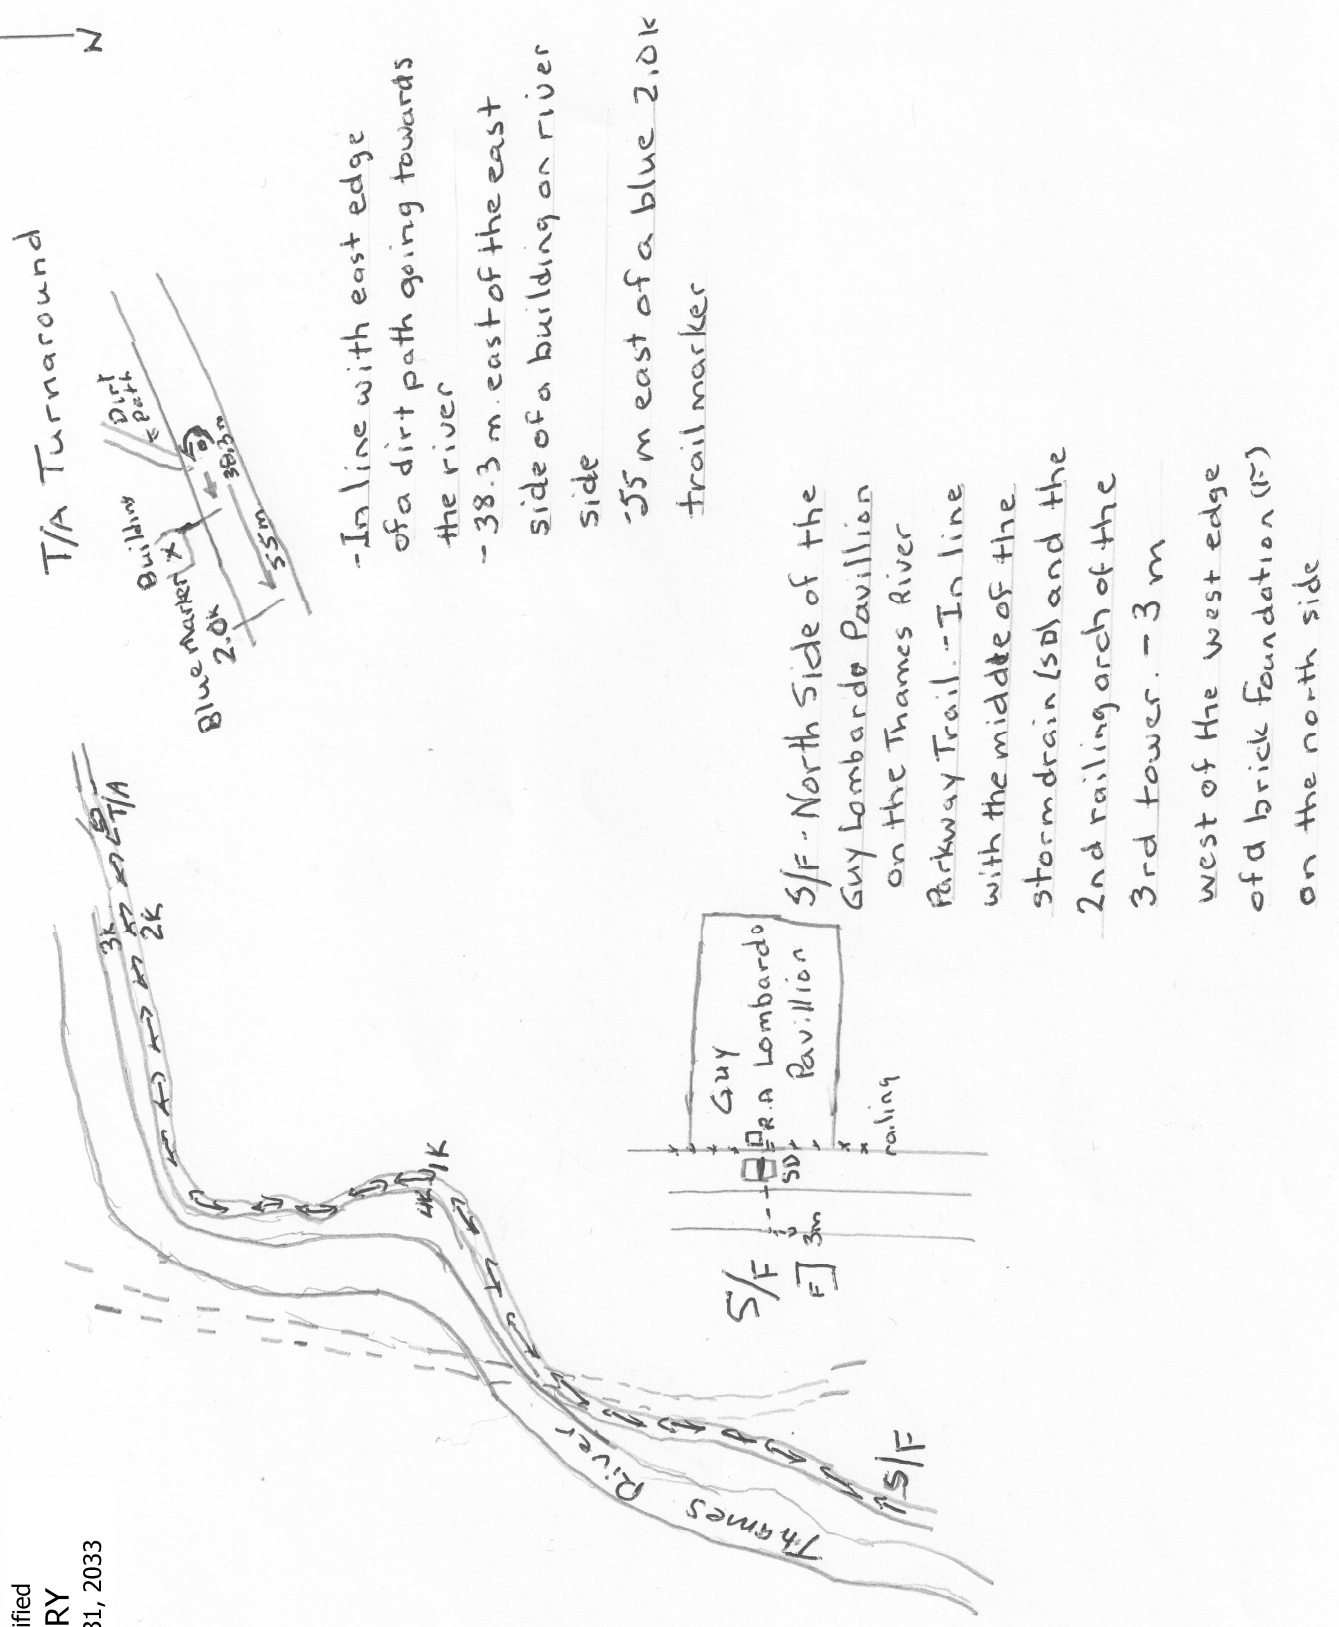 N
T/A Turnaround
Dirt
Path
Building
Blue Marker X
2.0k
38.3m
55m
-In line with east edge
of a dirt path going towards
the river
-38.3 m. east of the east
side of a building on river
side
-55 m east of a blue 2.0k
trail marker
3k
2k
T/A
4k
1k
Thames River
S/F
Guy
R.A Lombardo
Pavillion
railing
SD
3m
S/F
F
S/F - North Side of the
Guy Lombardo Pavillion
on the Thames River
Parkway Trail. - In line
with the middle of the
storm drain (SD) and the
2nd railing arch of the
3rd tower. - 3 m
west of the west edge
of a brick foundation (F)
on the north side
ified
RY
31, 2033